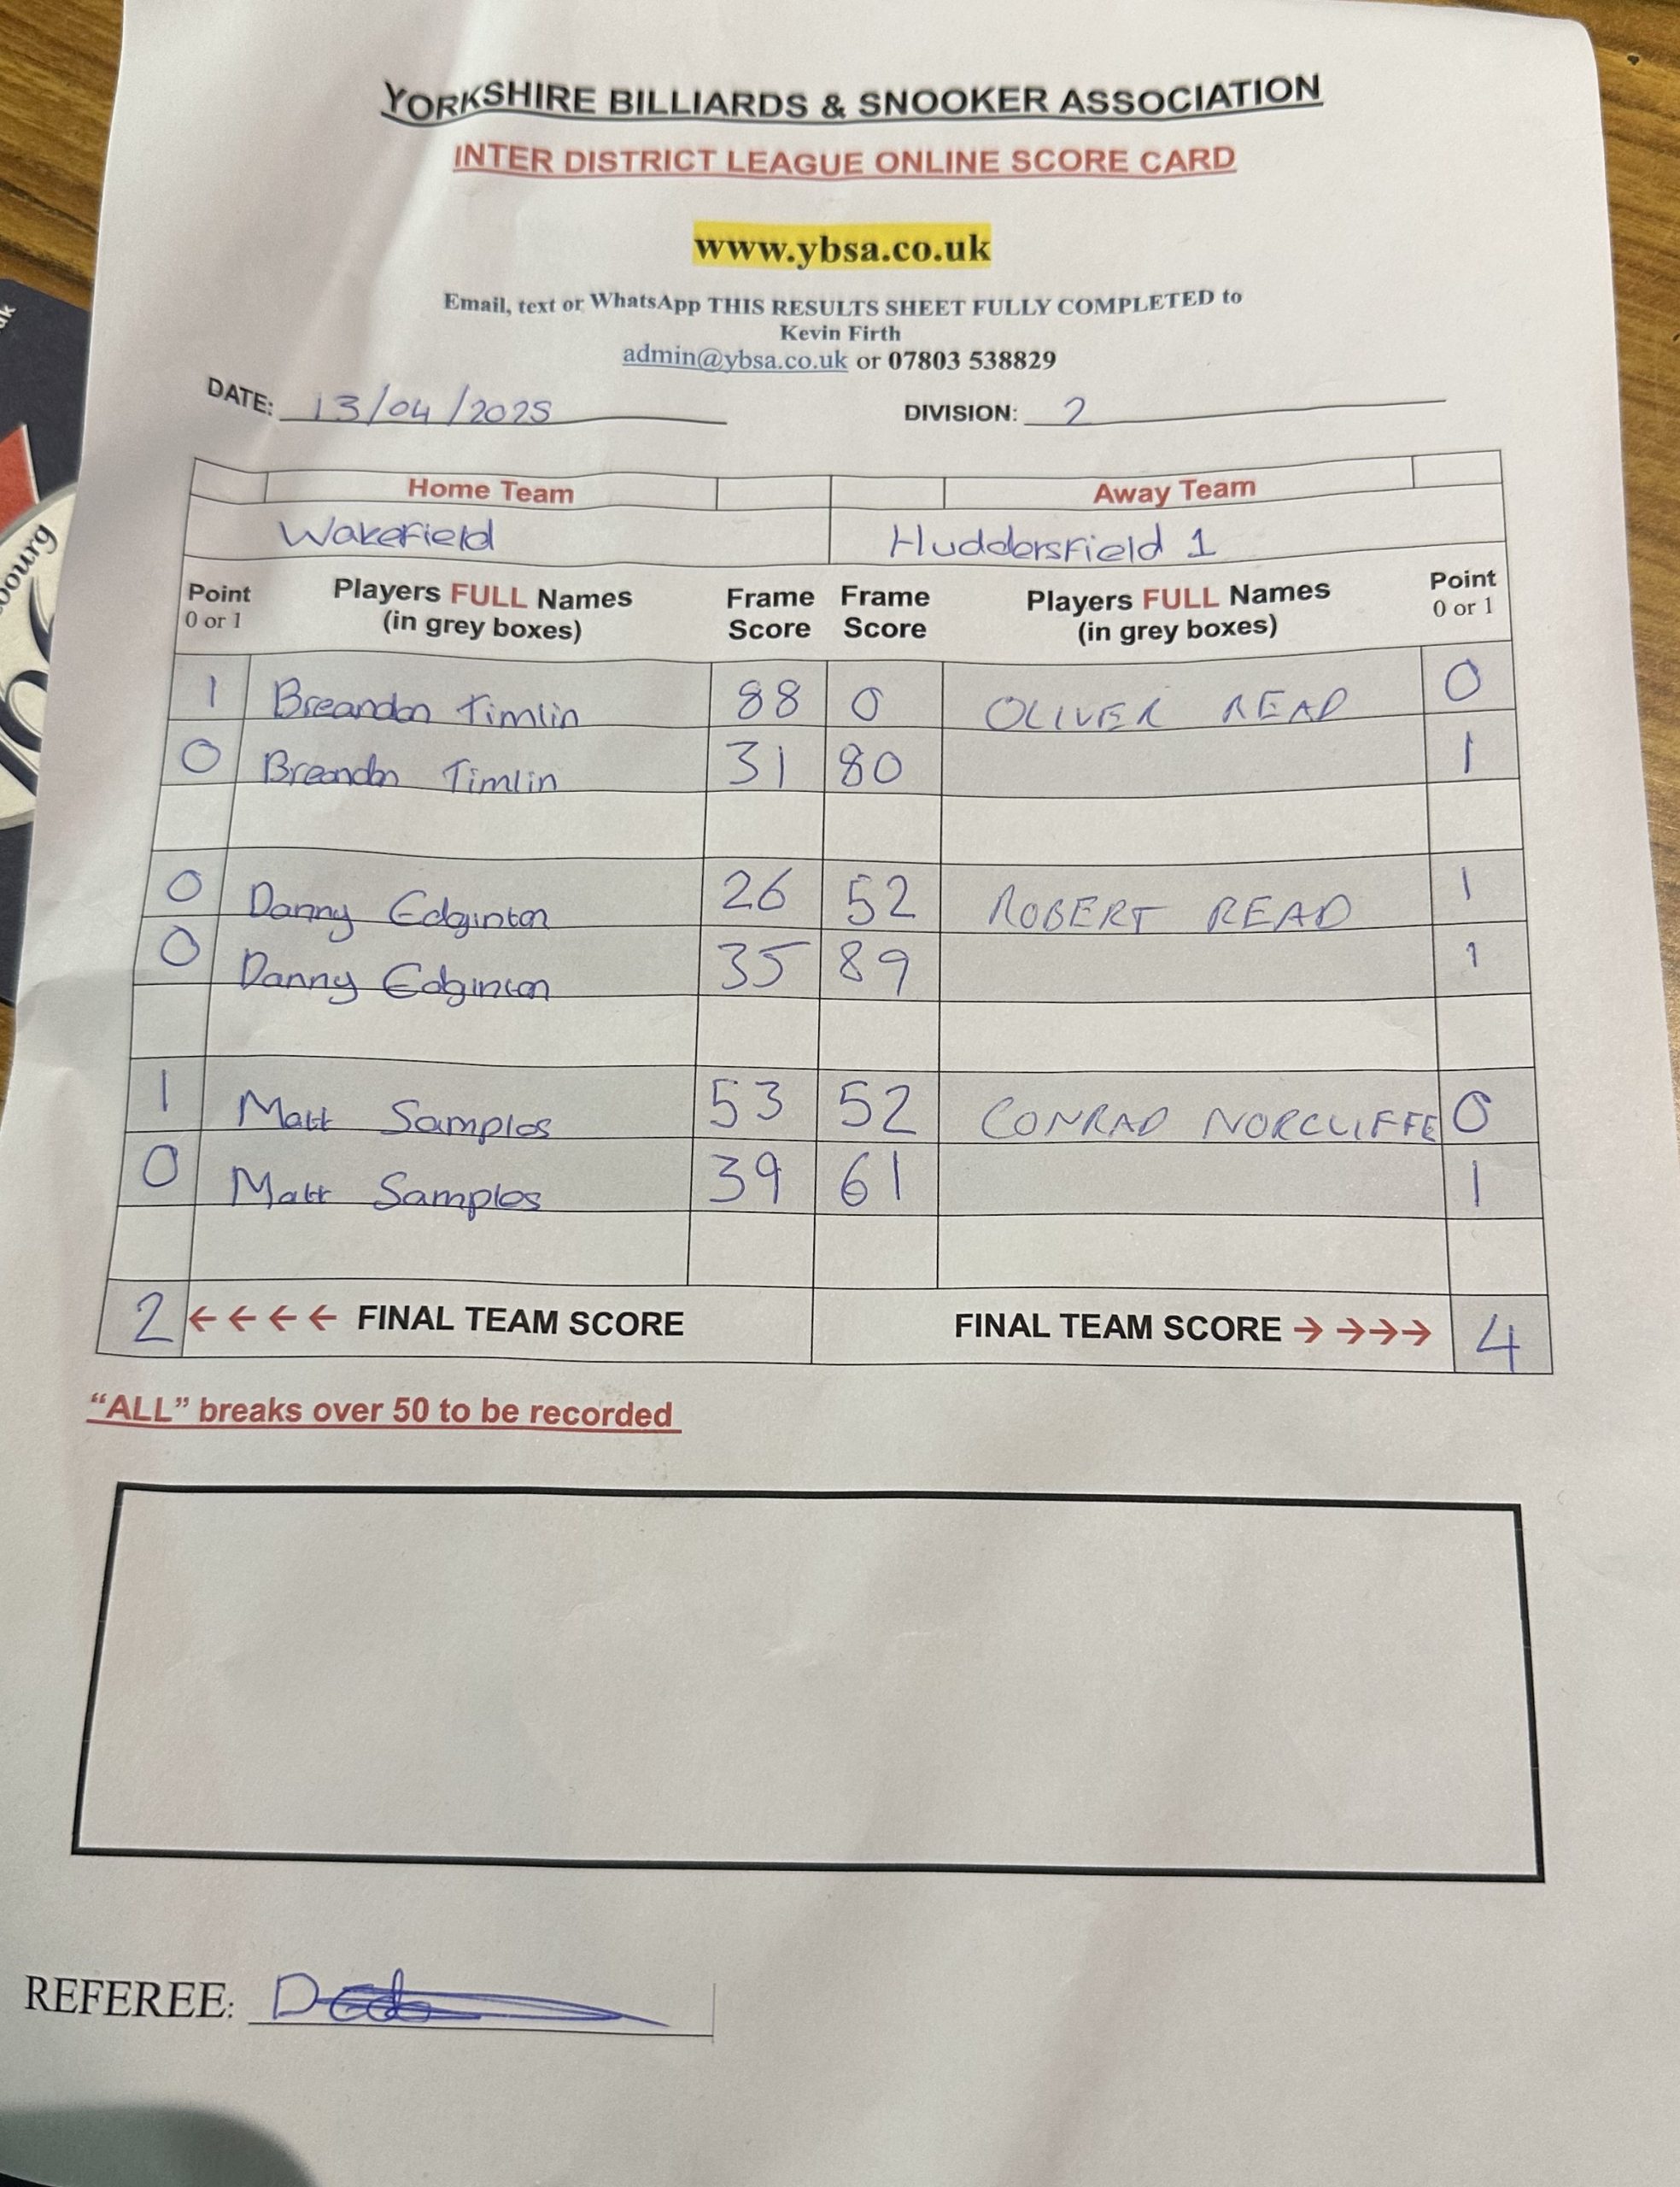 YORKSHIRE BILLIARDS & SNOOKER ASSOCIATION
INTER DISTRICT LEAGUE ONLINE SCORE CARD
www.ybsa.co.uk
Email, text or WhatsApp THIS RESULTS SHEET FULLY COMPLETED to
Kevin Firth
admin@ybsa.co.uk or 07803 538829
DATE: 13/04/2025 DIVISION: 2
Home Team Away Team
Wakefield Huddersfield 1
Point 0 or 1 Players FULL Names (in grey boxes) Frame Score Frame Score Players FULL Names (in grey boxes) Point 0 or 1
1 Breandan Timlin 88 0 OLIVER READ 0
0 Breandan Timlin 31 80 1
0 Danny Edginton 26 52 ROBERT READ 1
0 Danny Edginton 35 89 1
1 Matt Samples 53 52 CONRAD NORCLIFFE 0
0 Matt Samples 39 61 1
2 ←←←← FINAL TEAM SCORE FINAL TEAM SCORE →→→→ 4
“ALL” breaks over 50 to be recorded
REFEREE:
bourg
uk